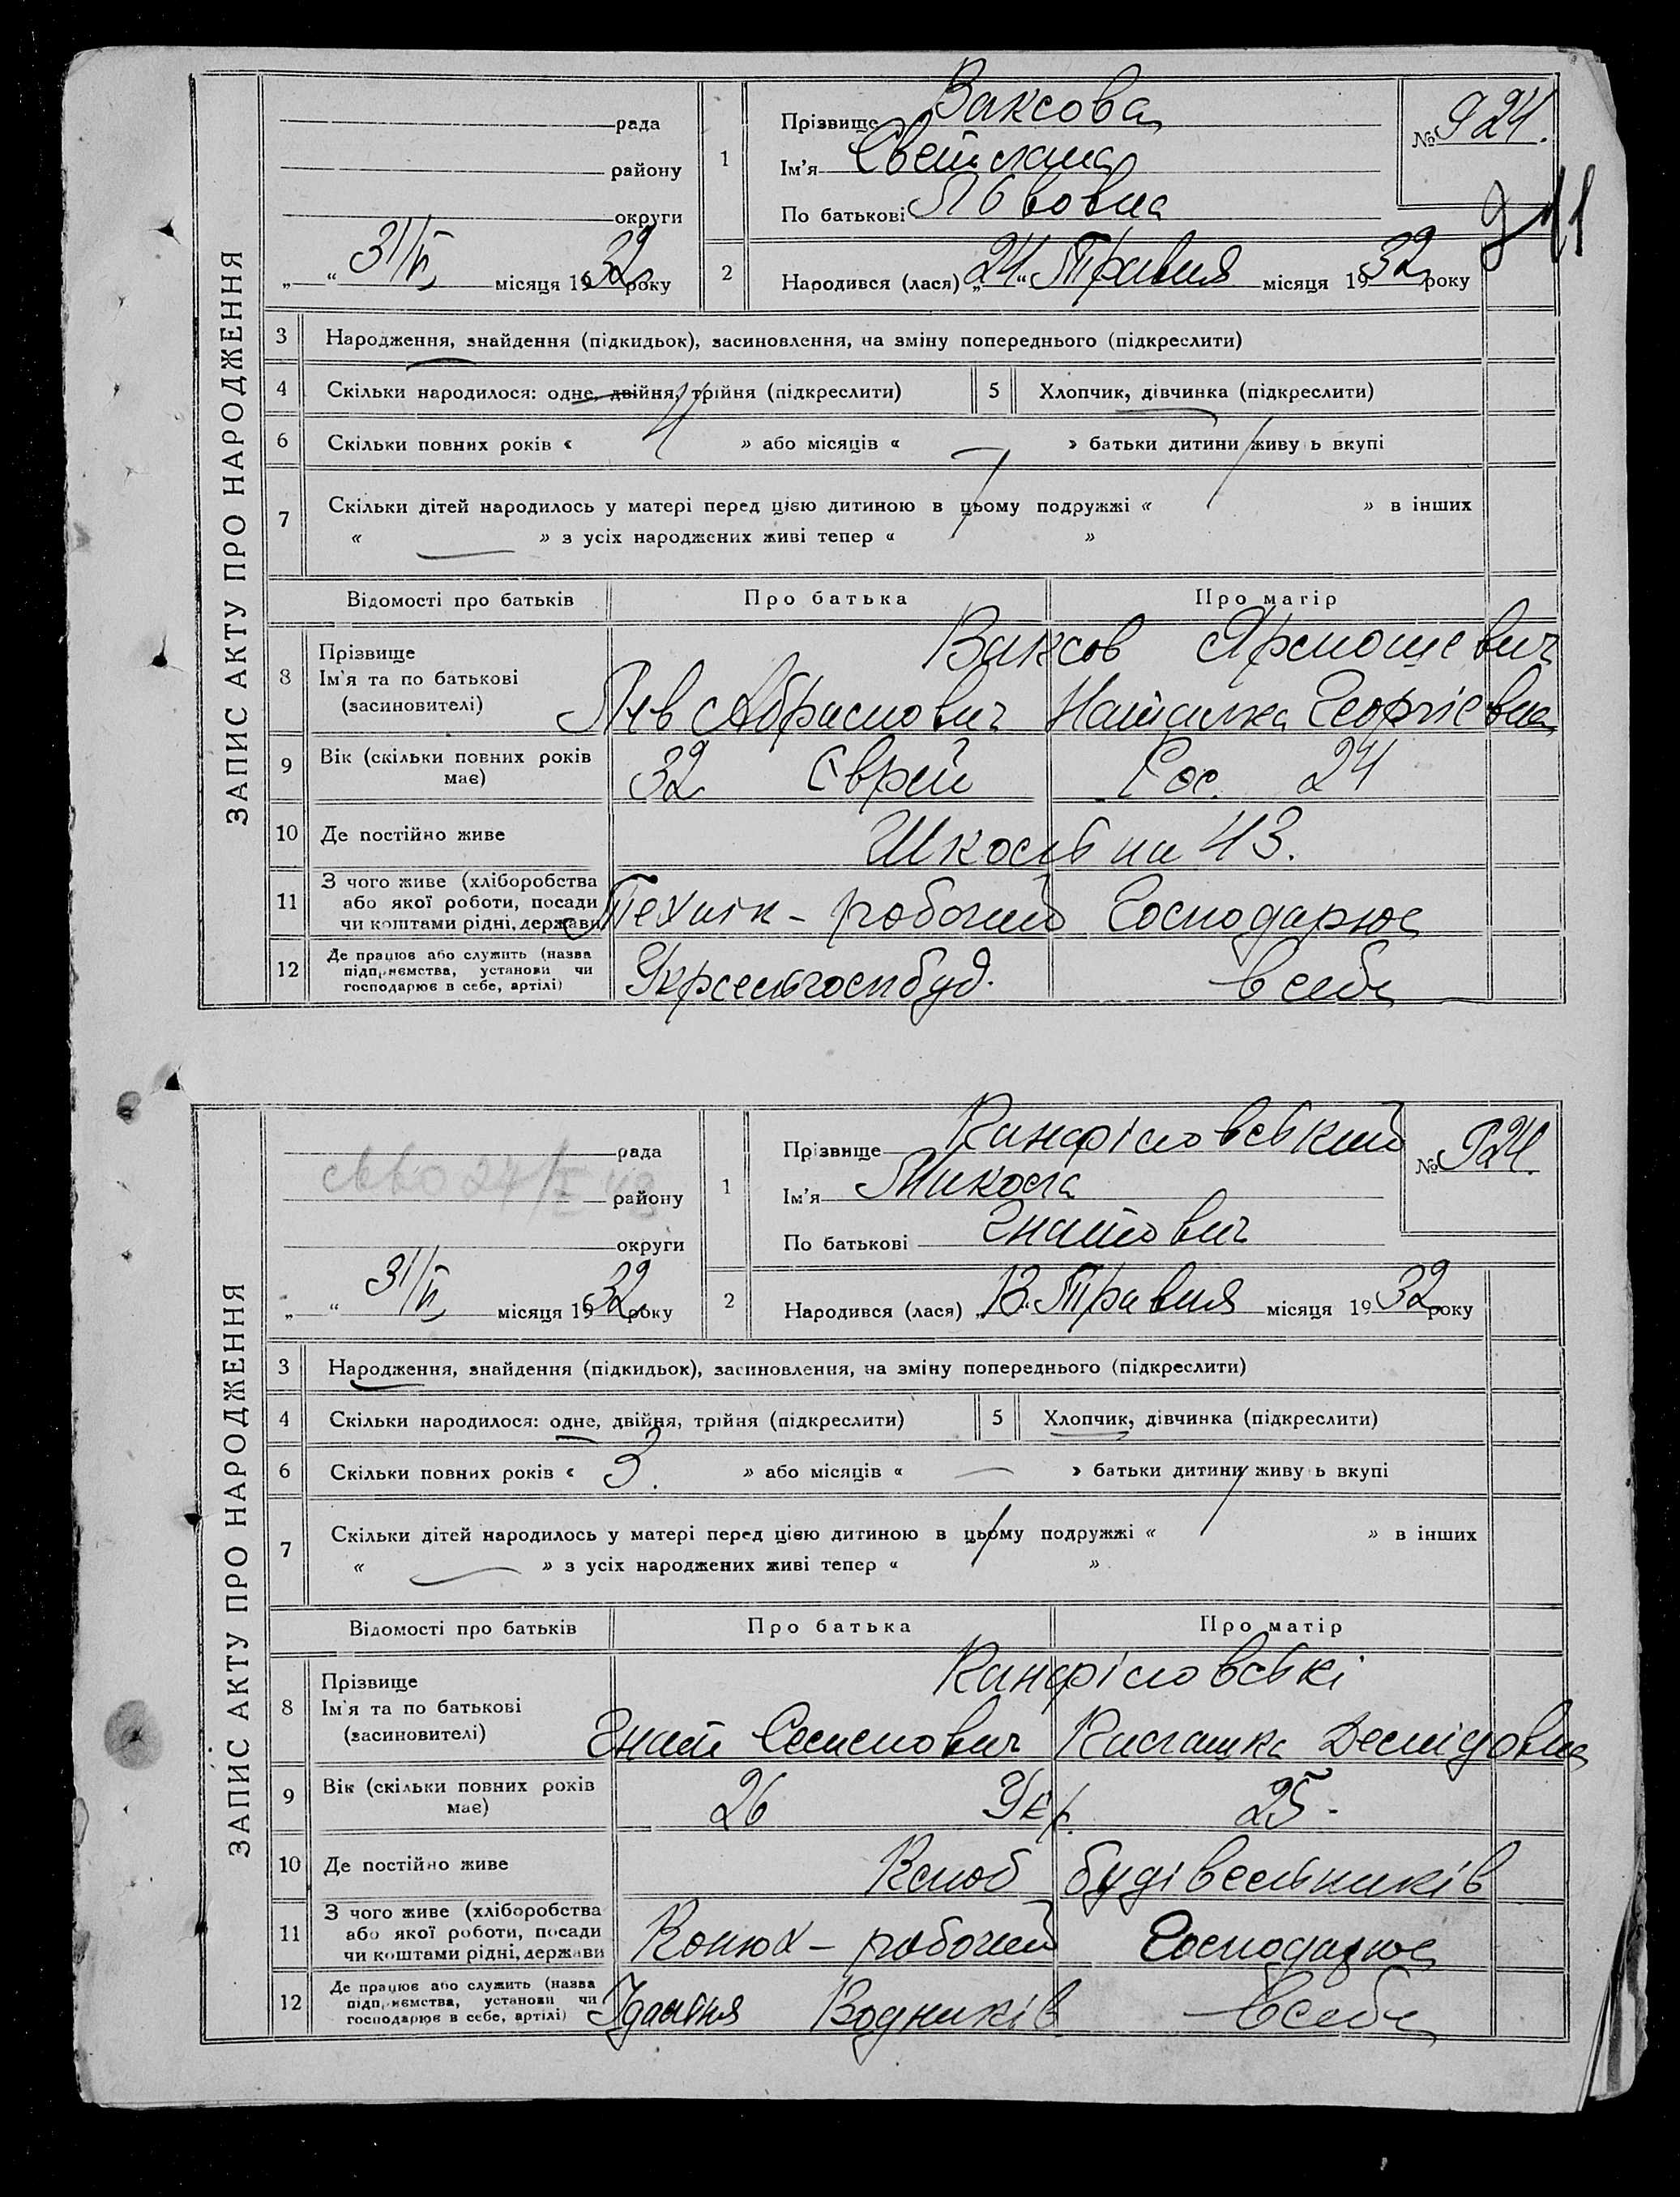 ЗАПИС АКТУ ПРО НАРОДЖЕННЯ
рада
району
округи
„ “ 31/V місяця 1932 року
1 Прізвище Ваксова
Ім'я Светлана
По батькові Львовна
№ 924.
2 Народився (лася) „24“ Травня місяця 1932 року
3 Народження, знайдення (підкидьок), засиновлення, на зміну попереднього (підкреслити)
4 Скільки народилося: одне, двійня, трійня (підкреслити) 5 Хлопчик, дівчинка (підкреслити)
6 Скільки повних років « 4 » або місяців « — » батьки дитини живуть вкупі
7 Скільки дітей народилось у матері перед цією дитиною в цьому подружжі « » в інших
« — » з усіх народжених живі тепер « »
Відомості про батьків Про батька Про матір
8 Прізвище Ваксов Ярмошевич
Ім'я та по батькові Лев Абрамович Наталка Георгієвна
(засиновителі)
9 Вік (скільки повних років має) 32 Єврей Рос. 24
10 Де постійно живе Шкільна 43.
11 З чого живе (хліборобства
або якої роботи, посади Технік - робочий Господарює
чи коштами рідні, держави
12 Де працює або служить (назва
підприємства, установи чи Укрсельгоспбуд. в себе
господарює в себе, артілі)
ЗАПИС АКТУ ПРО НАРОДЖЕННЯ
рада
району
округи
„ “ 31/V місяця 1932 року
1 Прізвище Канфіловський
Ім'я Микола
По батькові Гнатович
№ 924.
2 Народився (лася) „13. Травня місяця 1932 року
3 Народження, знайдення (підкидьок), засиновлення, на зміну попереднього (підкреслити)
4 Скільки народилося: одне, двійня, трійня (підкреслити) 5 Хлопчик, дівчинка (підкреслити)
6 Скільки повних років « 3. » або місяців « — » батьки дитини живуть вкупі
7 Скільки дітей народилось у матері перед цією дитиною в цьому подружжі « » в інших
« — » з усіх народжених живі тепер « »
Відомості про батьків Про батька Про матір
8 Прізвище Канфіловські
Ім'я та по батькові Гнат Семенович Килашка Демідовна
(засиновителі)
9 Вік (скільки повних років має) 26 Укр. 25.
10 Де постійно живе Клюб будівельників
11 З чого живе (хліборобства
або якої роботи, посади Конюх - робочий Господарює
чи коштами рідні, держави
12 Де працює або служить (назва
підприємства, установи чи Їдальня Водників в себе
господарює в себе, артілі)